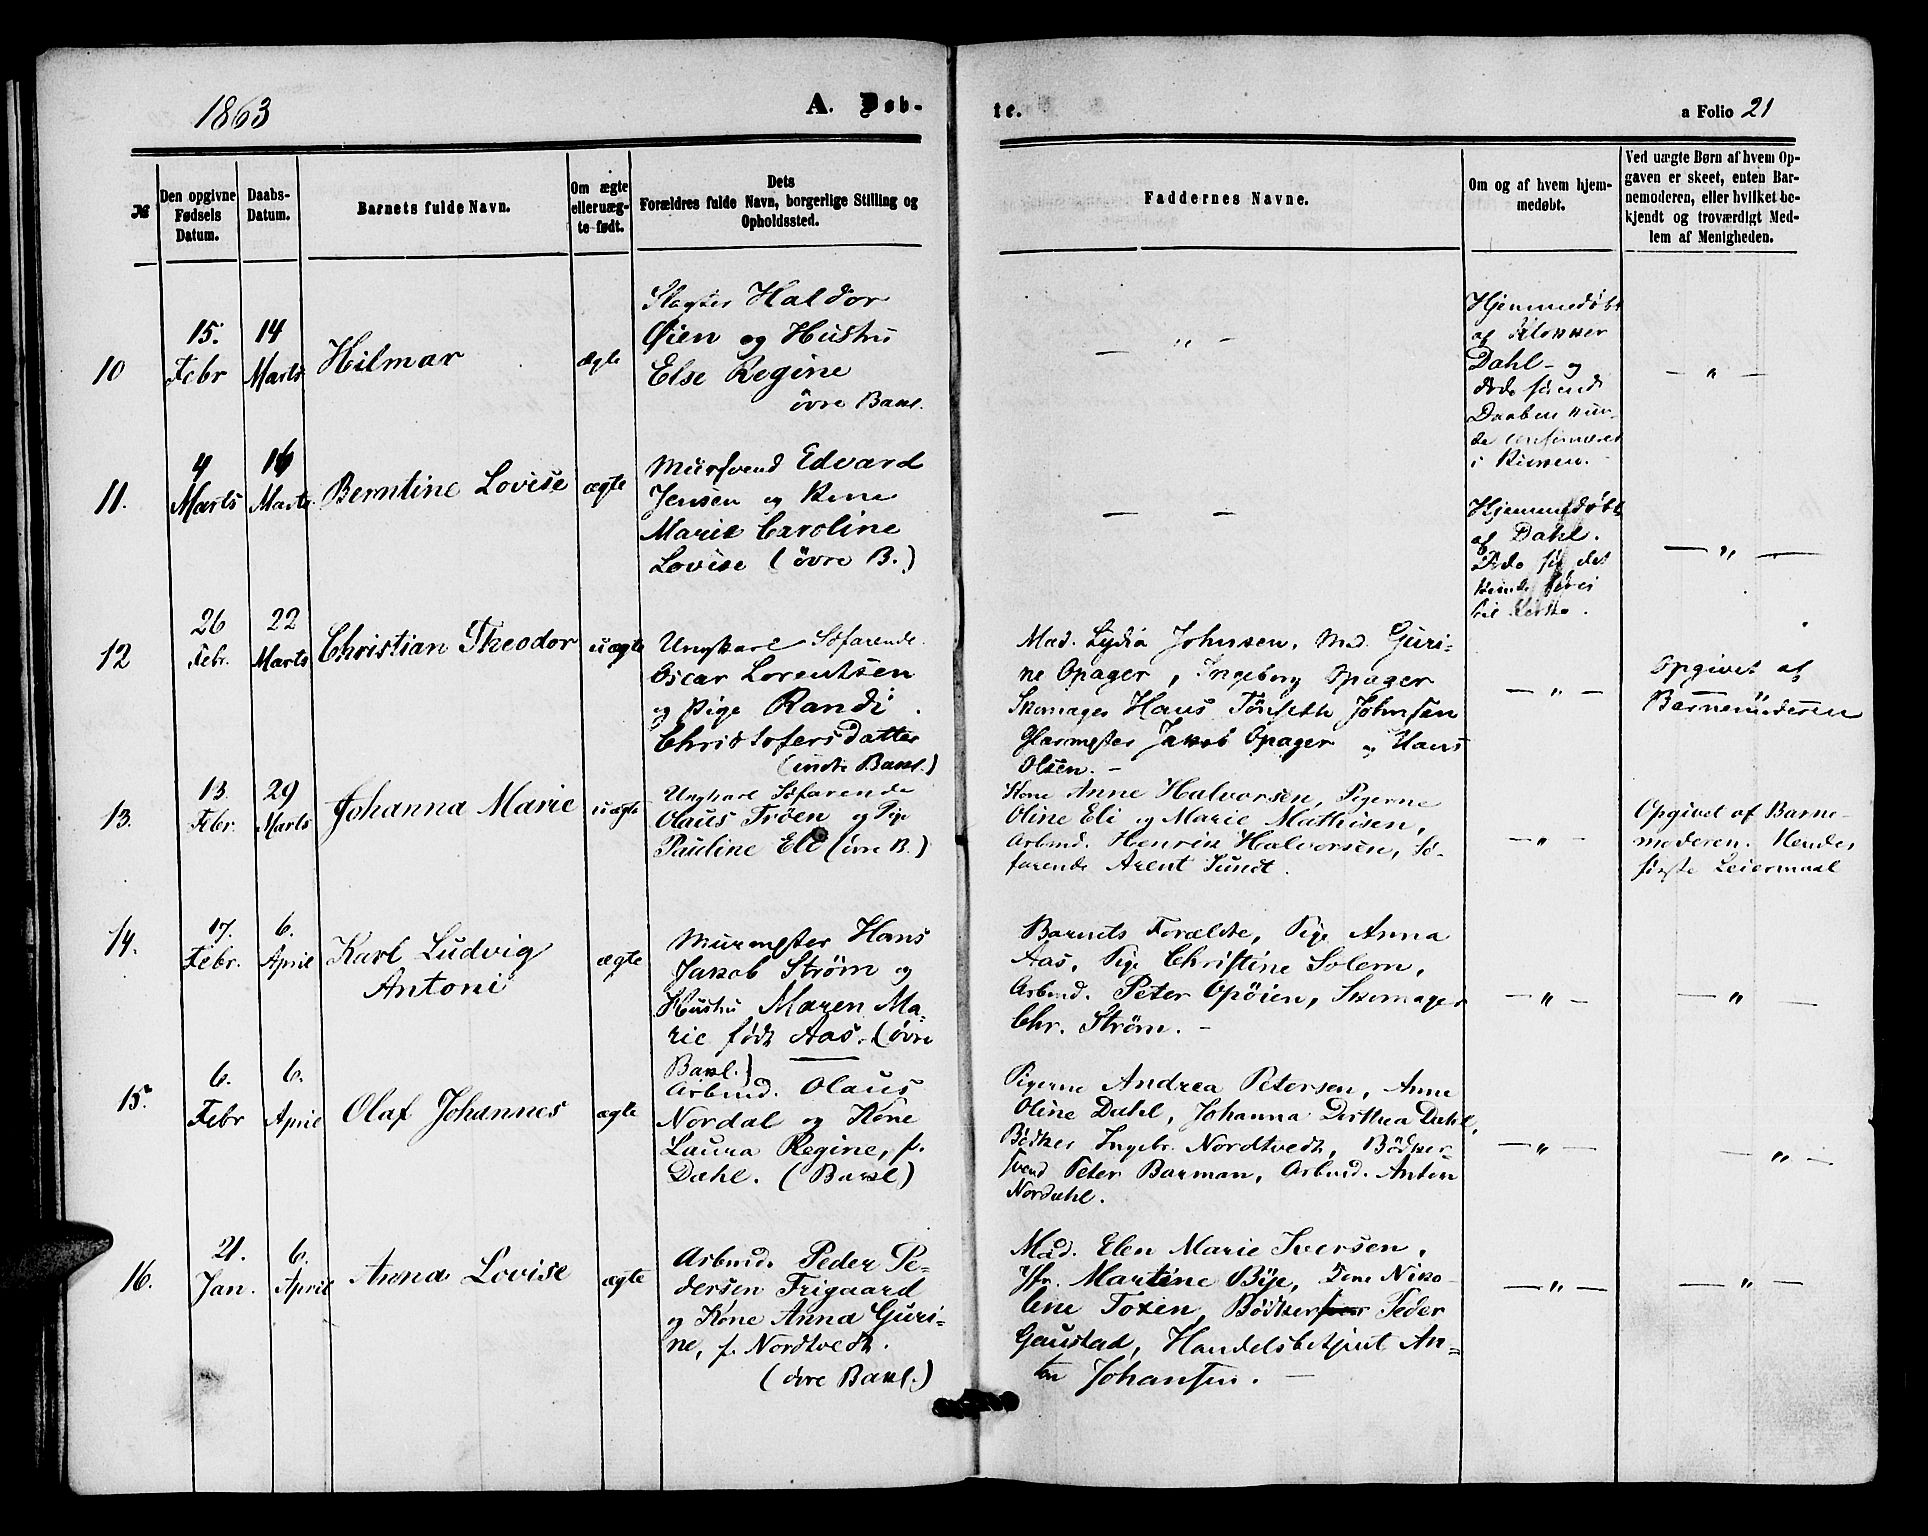 1863
A. Døb-
te.
a Folio 21
№
Den opgivne
Fødsels
Datum.
Daabs-
Datum.
Barnets fulde Navn.
Om ægte
eller uæg-
te født.
Dets
Forældres fulde Navn, borgerlige Stilling og
Opholdssted.
Faddernes Navne.
Om og af hvem hjem-
medøbt.
Ved uægte Børn af hvem Op-
gaven er skeet, enten Bar-
nemoderen, eller hvilket be-
kjendt og troværdigt Med-
lem af Menigheden.
10
15.
Febr
14
Marts
Hilmar
ægte
Slagter Haldor
Øien og Hustru
Else Regine
övre Bakl.
— „ —
Hjemmedøbt
af Klokker
Dahl - og
døde førend
Daaben kun-
de confirmeres
i Kirken.
— „ —
11.
4
Marts
16
Marts
Berntine Lovise
ægte
Mursvend Edvard
Jensen og Kone
Marie Caroline
Lovise (övre B.)
— —
Hjemmedøbt
af Dahl.
Døde før det
kunde føres
til Kirke.
— „ —
12
26
Febr.
22
Marts
Christian Theodor
uægte
Ungkarl Söfarende
Oscar Lorentsen
og Pige Randi
Christofersdatter
(indre Bakl.)
Mad. Lydia Johnsen, Md. Guri-
ne Opager, Ingeborg Opager
Skomager Hans Tönseth Johnsen
Glarmester Jakob Opager og Hans
Olsen. -
— „ —
Opgivet af
Barnemoderen
13.
13.
Febr.
29
Marts
Johanna Marie
uægte
Ungkarl Söfarende
Olaus Trøen og Pige
Pauline Eli (övre B.)
Kone Anne Halvorsen, Pigerne
Oline Eli og Marie Mathisen,
Arbmd. Henrik Halvorsen, Sö-
farende Arent Sundt.
— „ —
Opgivet af Barne-
moderen. Hendes
første Leiermaal
14.
17.
Febr.
6.
April
Karl Ludvig
Antoni
ægte
Murmester Hans
Jakob Strøm og
Hustru Maren Ma-
rie født Aas. (övre
Bakl.)
Barnets Forældre, Pige Anna
Aas, Pige Christine Solem,
Arbmd. Peter Opöien, Skomager
Chr. Strøm. -
— „ —
— „ —
15.
6.
Febr
6.
April
Olaf Johannes
ægte
Arbmd. Olaus
Nordal og Kone
Laura Regine, f.
Dahl. (Bakl)
Pigerne Andrea Petersen, Anne
Oline Dahl, Johanna Dorthea Dahl,
Bödker Ingebr. Nordtvedt, Bödker-
svend Peter Barman, Arbmd. Anton
Nordahl.
— „ —
— „ —
16.
21.
Jan.
6.
April
Anna Lovise
ægte
Arbmd. Peder Pe-
dersen Frigaard
og Kone Anna Guri-
ne, f. Nordtvedt.
(övre Bakl.)
Mad. Elen Marie Iversen,
Jfr. Martine Bye, Kone Niko-
line Toxen, Bödker Peder
Gaustad, Handelsbetjent An-
ton Johansen. -
— „ —
— „ —